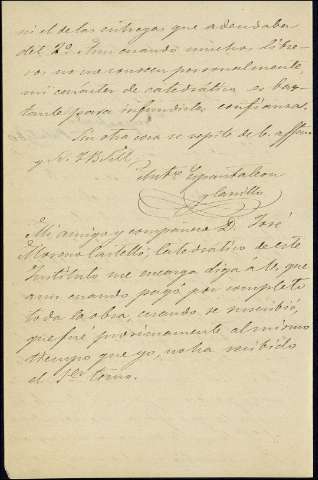 ni el de las entregas que adeudaba
del 2º. Aun cuando muchos libre-
ros no me conocen personalmente,
mi carácter de catedrático es bas-
tante para infundirles confianza.
Sin otra cosa se repite de V. affmo
y S. S.
Antº Espantaleon
y Carrillo
Mi amigo y compañero D. José
Moreno Castelló, Catedrático de este
Instituto me encarga diga á V. que
aun cuando pagó por completo
toda la obra, cuando se suscribió,
que fué próximamente al mismo
tiempo que yo, no ha recibido
el 1er tomo.